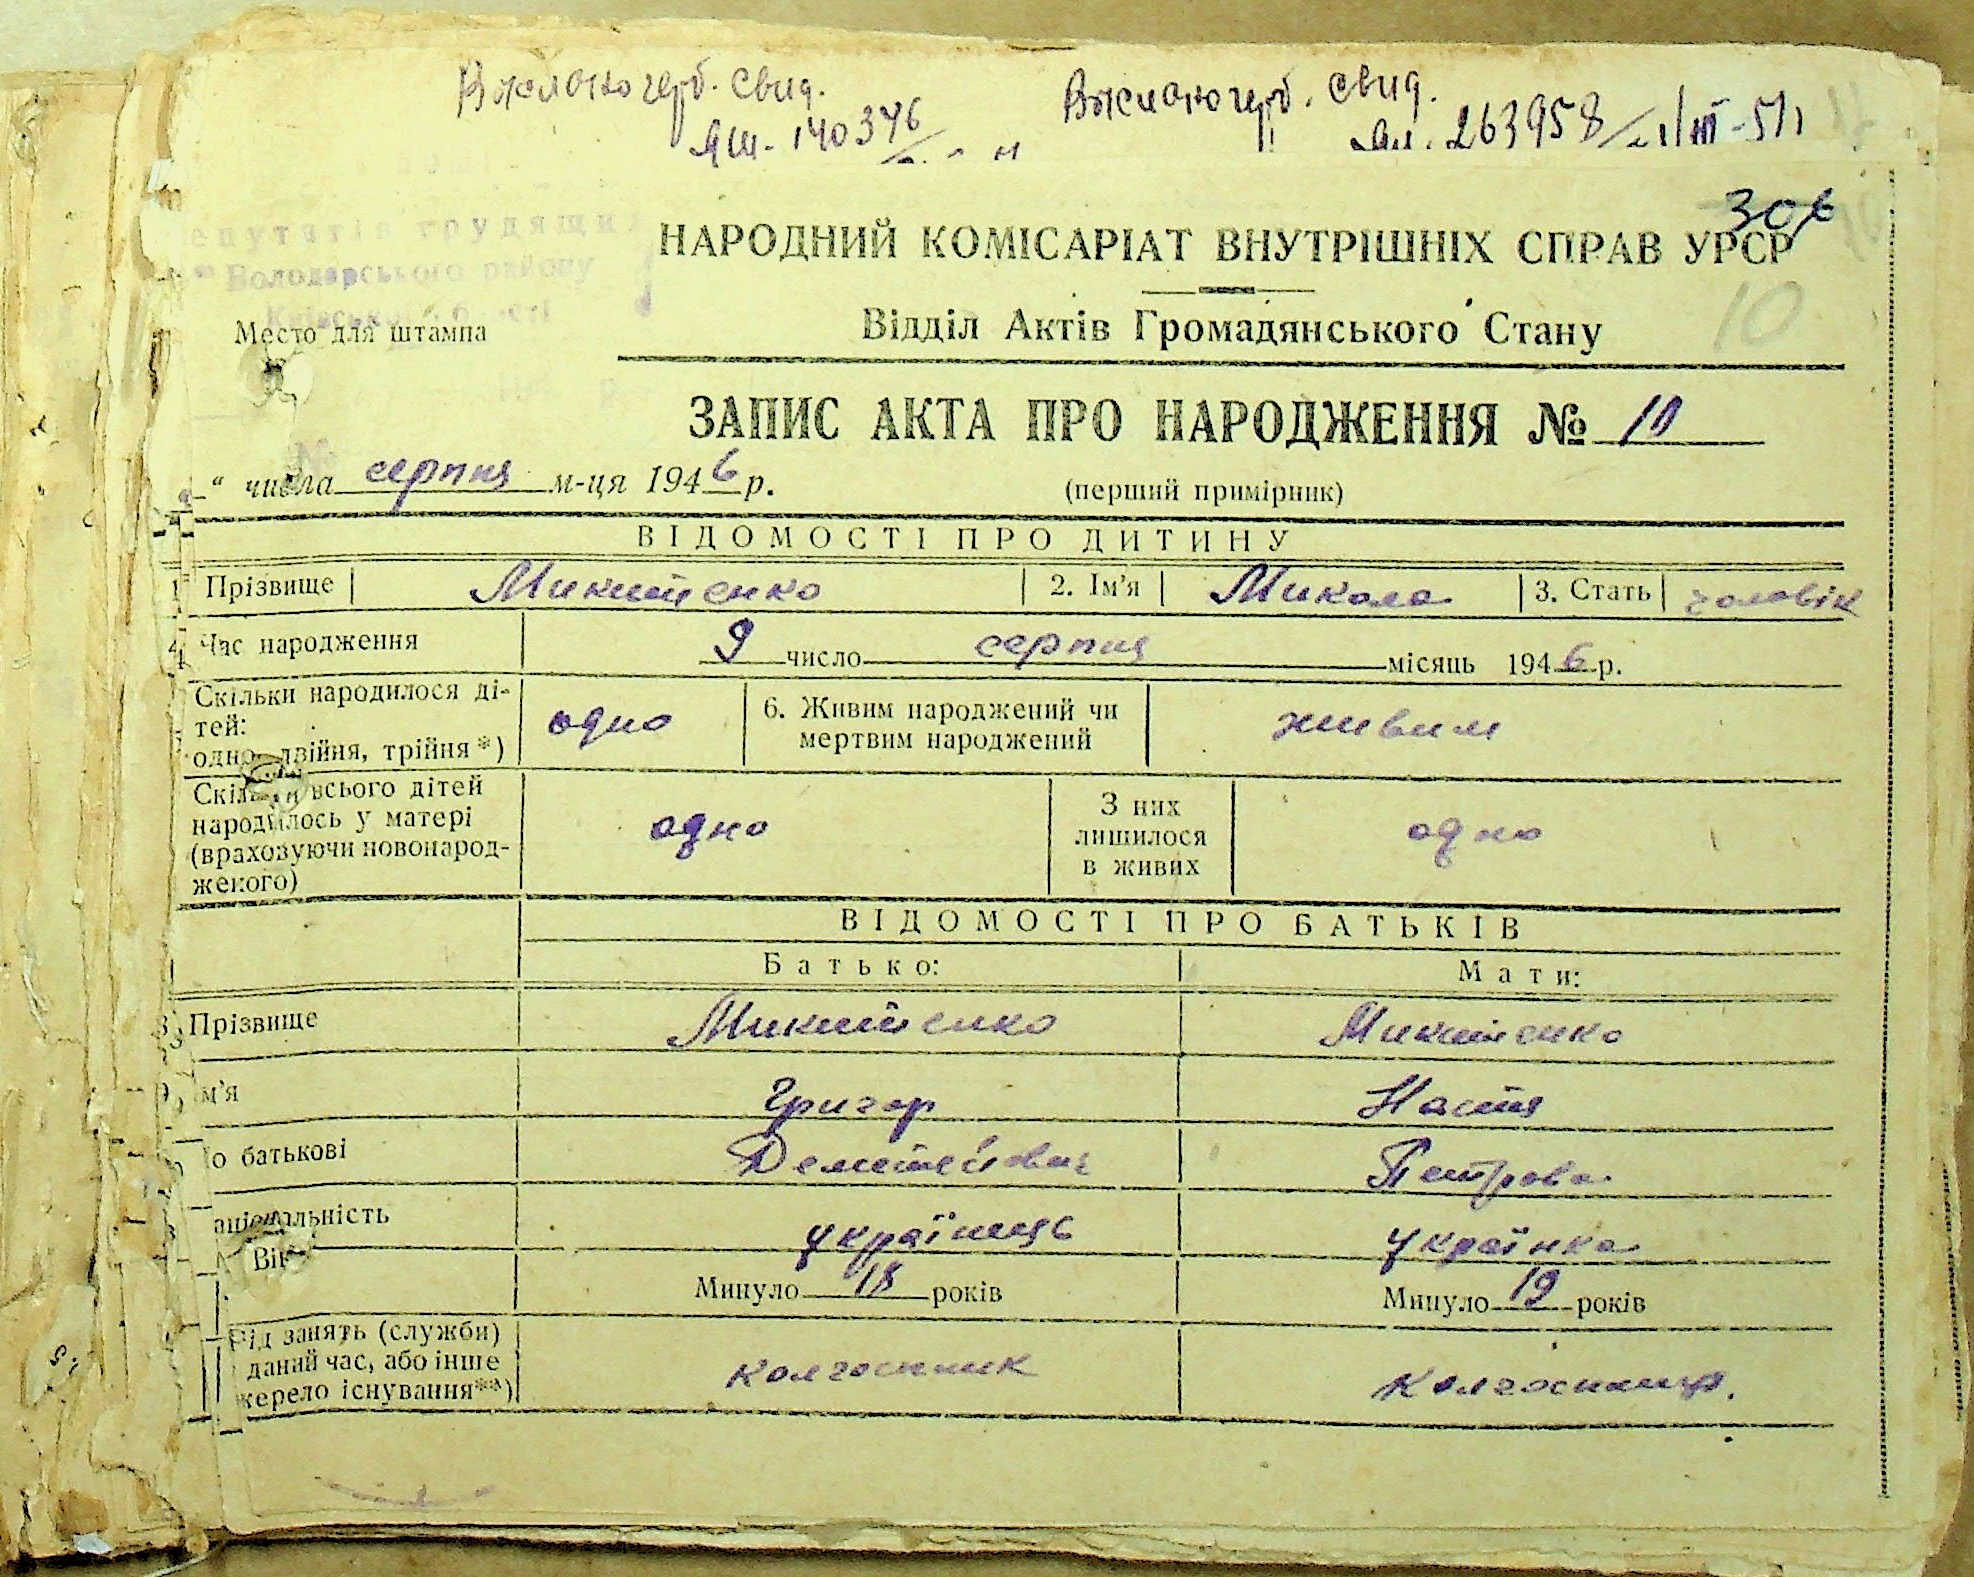 герб. свид.
ЯШ. 140346
герб. свид.
263958 III-51
306
епутатів трудящи
Володарського району
Київсько
НАРОДНИЙ КОМІСАРІАТ ВНУТРІШНІХ СПРАВ УРСР
10
Место для штампа
Відділ Актів Громадянського Стану
ЗАПИС АКТА ПРО НАРОДЖЕННЯ № 10
№
“ числа серпня м-ця 1946 р.
(перший примірник)
ВІДОМОСТІ ПРО ДИТИНУ
1 Прізвище Микитенко 2. Ім'я Микола 3. Стать чоловік
4 Час народження 9 число серпня місяць 1946 р.
Скільки народилося ді-
тей:
одно, двійня, трійня*) одно
6. Живим народжений чи
мертвим народжений живим
Скільки всього дітей
народилось у матері
(враховуючи новонарод-
женого) одно
З них
лишилося
в живих одно
ВІДОМОСТІ ПРО БАТЬКІВ
Батько: Мати:
8 Прізвище Микитенко Микитенко
9 м'я Григор Настя
о батькові Деметейович Петрова
аціональність українець українка
Вік Минуло 18 років Минуло 19 років
Рід занять (служби)
даний час, або інше
жерело існування**) колгоспник колгоспниця.